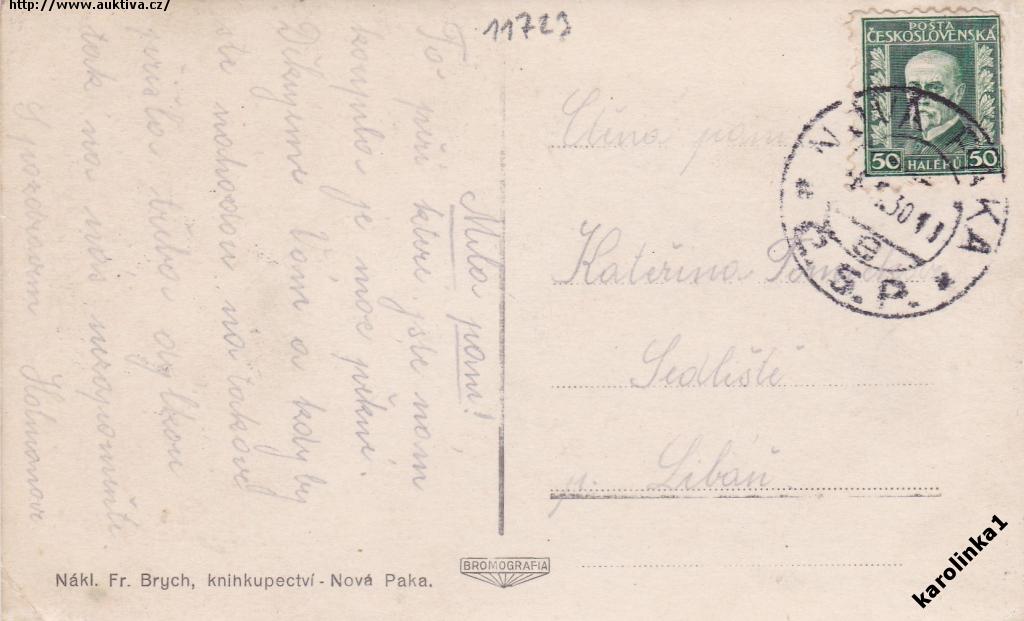 http://www.auktiva.cz/
11723
POŠTA
ČESKOSLOVENSKÁ
50 HALÉŘŮ 50
NOVÁ PAKA
30 11
* Č.S.P. *
Milá paní!
To peří které jste nám
koupila je moc pěkné.
Děkujeme Vám a kdyby
tu náhodou na takové
přišlo třeba dýlkou
tak na nás nezapomeňte.
S pozdravem
Ctěná paní
Kateřina
Sedliště
p. Libáň
Nákl. Fr. Brych, knihkupectví - Nová Paka.
BROMOGRAFIA
karolinka1